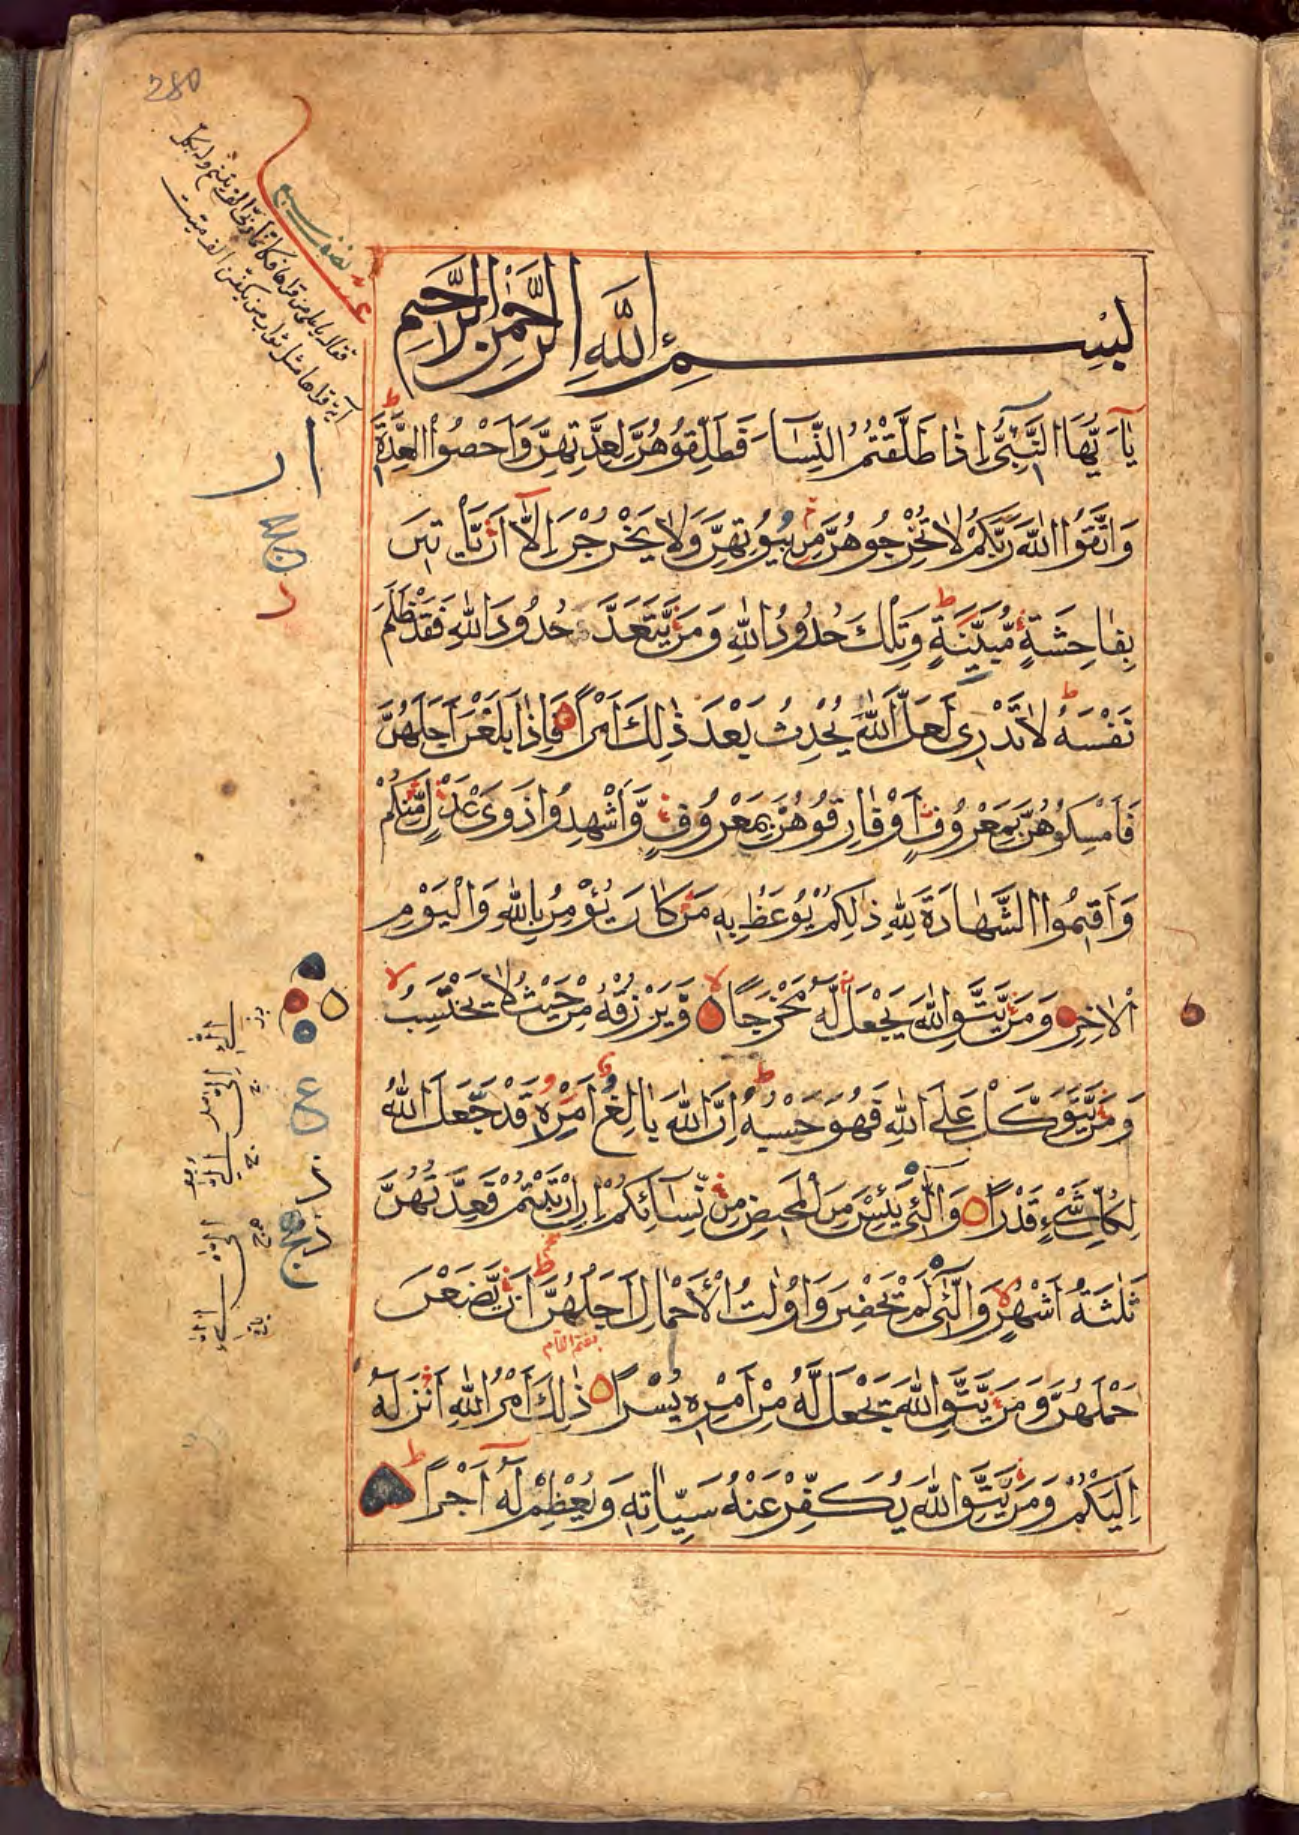 280
نصف سبع
بِسْمِ اللهِ الرَّحْمٰنِ الرَّحِيمِ
يَآ اَيُّهَا النَّبِيُّ اِذَا طَلَّقْتُمُ النِّسَآءَ فَطَلِّقُوهُنَّ لِعِدَّتِهِنَّ وَاَحْصُوا الْعِدَّةَ
وَاتَّقُوا اللهَ رَبَّكُمْ لَا تُخْرِجُوهُنَّ مِنْ بُيُوتِهِنَّ وَلَا يَخْرُجْنَ اِلَّآ اَنْ يَّاْتِيْنَ
بِفَاحِشَةٍ مُّبَيِّنَةٍ وَتِلْكَ حُدُودُ اللهِ وَمَنْ يَّتَعَدَّ حُدُودَ اللهِ فَقَدْ ظَلَمَ
نَفْسَهُ لَا تَدْرِي لَعَلَّ اللهَ يُحْدِثُ بَعْدَ ذٰلِكَ اَمْرًا فَاِذَا بَلَغْنَ اَجَلَهُنَّ
فَاَمْسِكُوهُنَّ بِمَعْرُوفٍ اَوْ فَارِقُوهُنَّ بِمَعْرُوفٍ وَّاَشْهِدُوا ذَوَيْ عَدْلٍ مِّنْكُمْ
وَاَقِيمُوا الشَّهَادَةَ لِلّٰهِ ذٰلِكُمْ يُوعَظُ بِهِ مَنْ كَانَ يُؤْمِنُ بِاللهِ وَالْيَوْمِ
الْاٰخِرِ وَمَنْ يَّتَّقِ اللهَ يَجْعَلْ لَّهُ مَخْرَجًا وَّيَرْزُقْهُ مِنْ حَيْثُ لَا يَحْتَسِبُ
وَمَنْ يَّتَوَكَّلْ عَلَى اللهِ فَهُوَ حَسْبُهُ اِنَّ اللهَ بَالِغُ اَمْرِهِ قَدْ جَعَلَ اللهُ
لِكُلِّ شَيْءٍ قَدْرًا وَالّٰٓئِي يَئِسْنَ مِنَ الْمَحِيضِ مِنْ نِّسَآئِكُمْ اِنِ ارْتَبْتُمْ فَعِدَّتُهُنَّ
ثَلٰثَةُ اَشْهُرٍ وَالّٰٓئِي لَمْ يَحِضْنَ وَاُولٰتُ الْاَحْمَالِ اَجَلُهُنَّ اَنْ يَّضَعْنَ
حَمْلَهُنَّ وَمَنْ يَّتَّقِ اللهَ يَجْعَلْ لَّهُ مِنْ اَمْرِهِ يُسْرًا ذٰلِكَ اَمْرُ اللهِ اَنْزَلَهُ
اِلَيْكُمْ وَمَنْ يَّتَّقِ اللهَ يُكَفِّرْ عَنْهُ سَيِّاٰتِهِ وَيُعْظِمْ لَهُ اَجْرًا